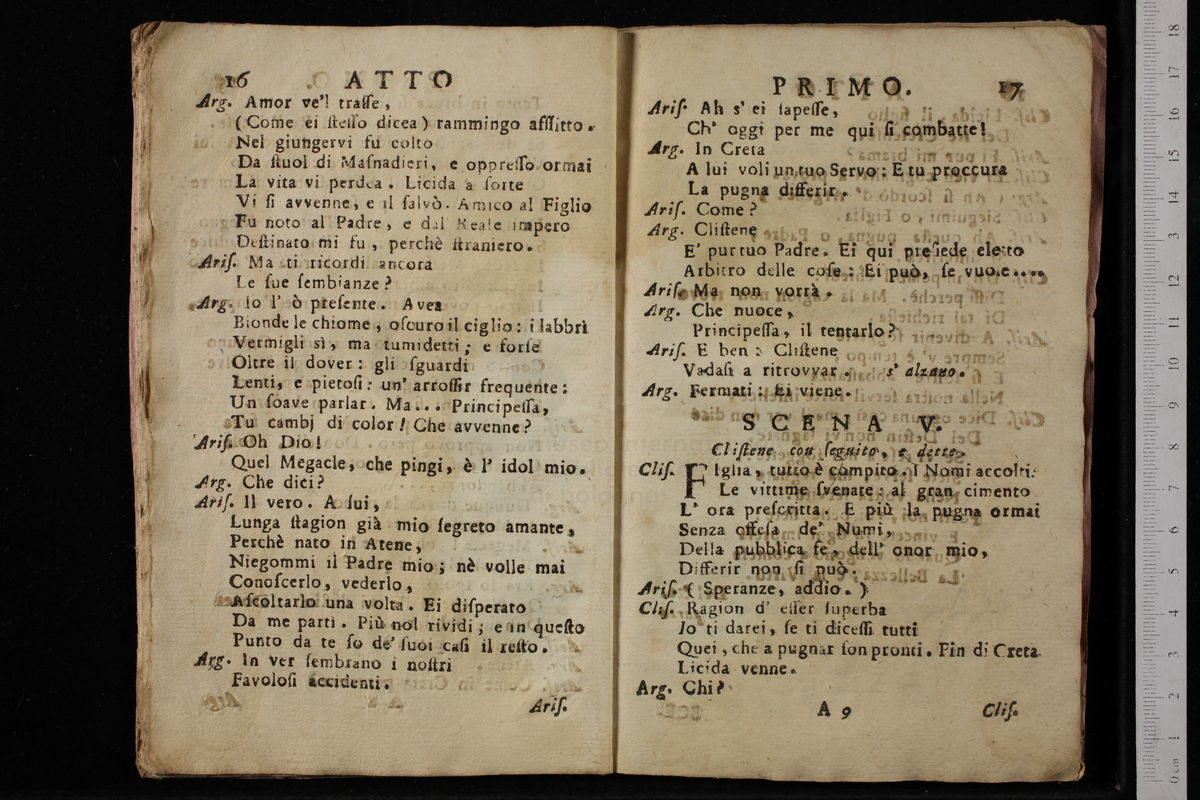 16 ATTO
Arg. Amor ve'l traſſe,
(Come ei ſteſſo dicea) rammingo afflitto.
Nel giungervi fu colto
Da ſtuol di Maſnadieri, e oppreſſo ormai
La vita vi perdea. Licida a ſorte
Vi ſi avvenne, e il ſalvò. Amico al Figlio
Fu noto al Padre, e dal Reale impero
Deſtinato mi fu, perchè ſtraniero.
Ariſ. Ma ti ricordi ancora
Le ſue ſembianze?
Arg. Io l' ò preſente. Avea
Bionde le chiome, oſcuro il ciglio: i labbri
Vermigli sì, ma tumidetti; e forſe
Oltre il dover: gli ſguardi
Lenti, e pietoſi: un' arroſſir frequente:
Un ſoave parlar. Ma... Principeſſa,
Tu cambj di color! Che avvenne?
Ariſ. Oh Dio!
Quel Megacle, che pingi, è l' idol mio.
Arg. Che dici?
Ariſ. Il vero. A lui,
Lunga ſtagion già mio ſegreto amante,
Perchè nato in Atene,
Niegommi il Padre mio; nè volle mai
Conoſcerlo, vederlo,
Aſcoltarlo una volta. Ei diſperato
Da me partì. Più nol rividi; e in queſto
Punto da te ſo de' ſuoi caſi il reſto.
Arg. In ver ſembrano i noſtri
Favoloſi accidenti.
Ariſ.
PRIMO. 17
Ariſ. Ah s' ei ſapeſſe,
Ch' oggi per me qui ſi combatte!
Arg. In Creta
A lui voli un tuo Servo: E tu proccura
La pugna differir.
Ariſ. Come?
Arg. Cliſtene
E' pur tuo Padre. Ei qui preſiede eletto
Arbitro delle coſe: Ei può, ſe vuole....
Ariſ. Ma non vorrà.
Arg. Che nuoce,
Principeſſa, il tentarlo?
Ariſ. E ben: Cliſtene
Vadaſi a ritrovvar. s' alzano.
Arg. Fermati: Ei viene.
SCENA V.
Cliſtene con ſeguito, e dette.
Cliſ. FIglia, tutto è compito. I Nomi accolti:
Le vittime ſvenate: al gran cimento
L' ora preſcritta. E più la pugna ormai
Senza offeſa de' Numi,
Della pubblica fe, dell' onor mio,
Differir non ſi può.
Ariſ. (Speranze, addio.)
Cliſ. Ragion d' eſſer ſuperba
Io ti darei, ſe ti diceſſi tutti
Quei, che a pugnar ſon pronti. Fin di Creta
Licida venne.
Arg. Chi?
A 9 Cliſ.
0 cm 1 2 3 4 5 6 7 8 9 10 11 12 13 14 15 16 17 18